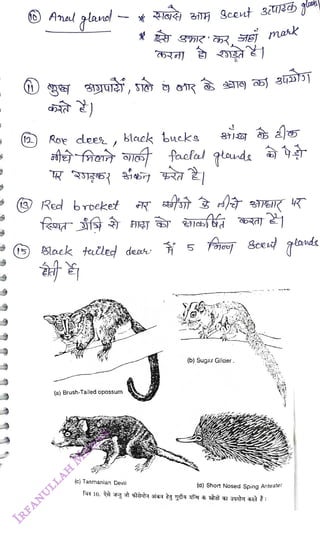 ⑩ Anal gland — * सबसे आम Scent उत्पादक gland
* इसे उभार कर, जहाँ mark
करना हो रगड़ते हैं।
⑪ कुछ अग्रपादों, गले व लार के स्राव का उपयोग
करते हैं।
⑫ Roe deer, black bucks आँख के ठीक
नीचे मिलने वाली facial glands को पेड़ो
पर रगड़कर अंकन करते हैं।
⑬ Red brocket नर सींगो के नीचे आधार पर
स्थित ग्रंथि से मादा को आकर्षित करता है।
⑮ Black tailed dear में 5 भिन्न Scent glands
होती हैं।
(a) Brush-Tailed opossum
(b) Sugar Gilder.
(c) Tasmanian Devil
(d) Short Nosed Sping Anteater
चित्र 10. ऐसे जन्तु जो फीरोमोन अंकन हेतु गुदीय ग्रन्थि के स्रावों का उपयोग करते हैं।
IRFANULLAH